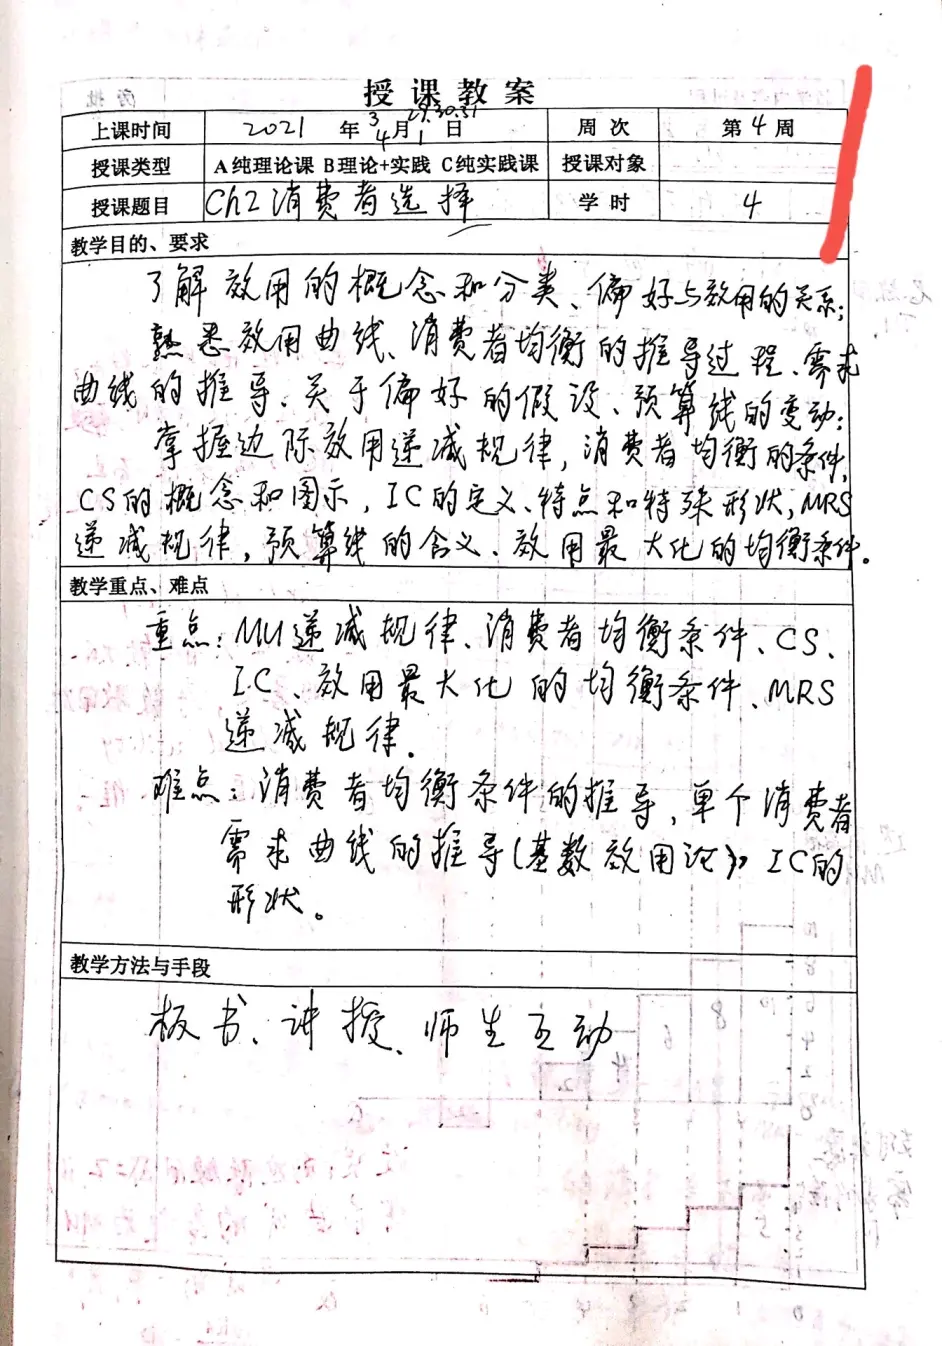 授课教案
上课时间 2021 年 3月 29.30.31 日 周次 第4周
4 1
授课类型 A纯理论课 B理论+实践 C纯实践课 授课对象
授课题目 Ch2 消费者选择 学时 4
教学目的、要求
了解效用的概念和分类、偏好与效用的关系;
熟悉效用曲线、消费者均衡的推导过程、需求
曲线的推导、关于偏好的假设、预算线的变动;
掌握边际效用递减规律,消费者均衡的条件,
CS的概念和图示,IC的定义、特点和特殊形状,MRS
递减规律,预算线的含义、效用最大化的均衡条件。
教学重点、难点
重点:MU递减规律、消费者均衡条件、CS、
IC、效用最大化的均衡条件、MRS
递减规律.
难点:消费者均衡条件的推导,单个消费者
需求曲线的推导(基数效用论)、IC的
形状。
教学方法与手段
板书、讲授、师生互动